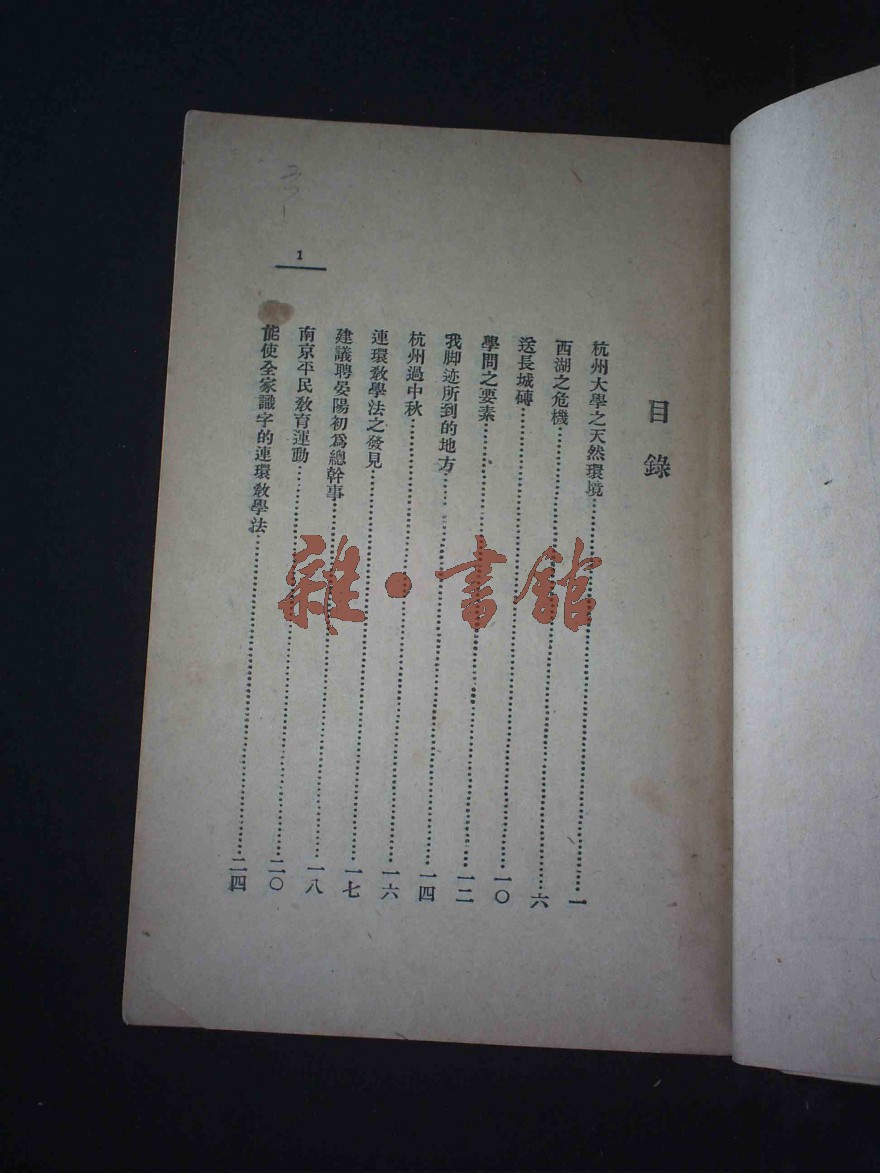 目錄
杭州大學之天然環境……一
西湖之危機……六
送長城磚……一〇
學問之要素……一二
我脚迹所到的地方……一四
杭州過中秋……一六
連環敎學法之發見……一七
建議聘晏陽初爲總幹事……一八
南京平民敎育運動……二〇
能使全家識字的連環敎學法……二四
1
雜·書館